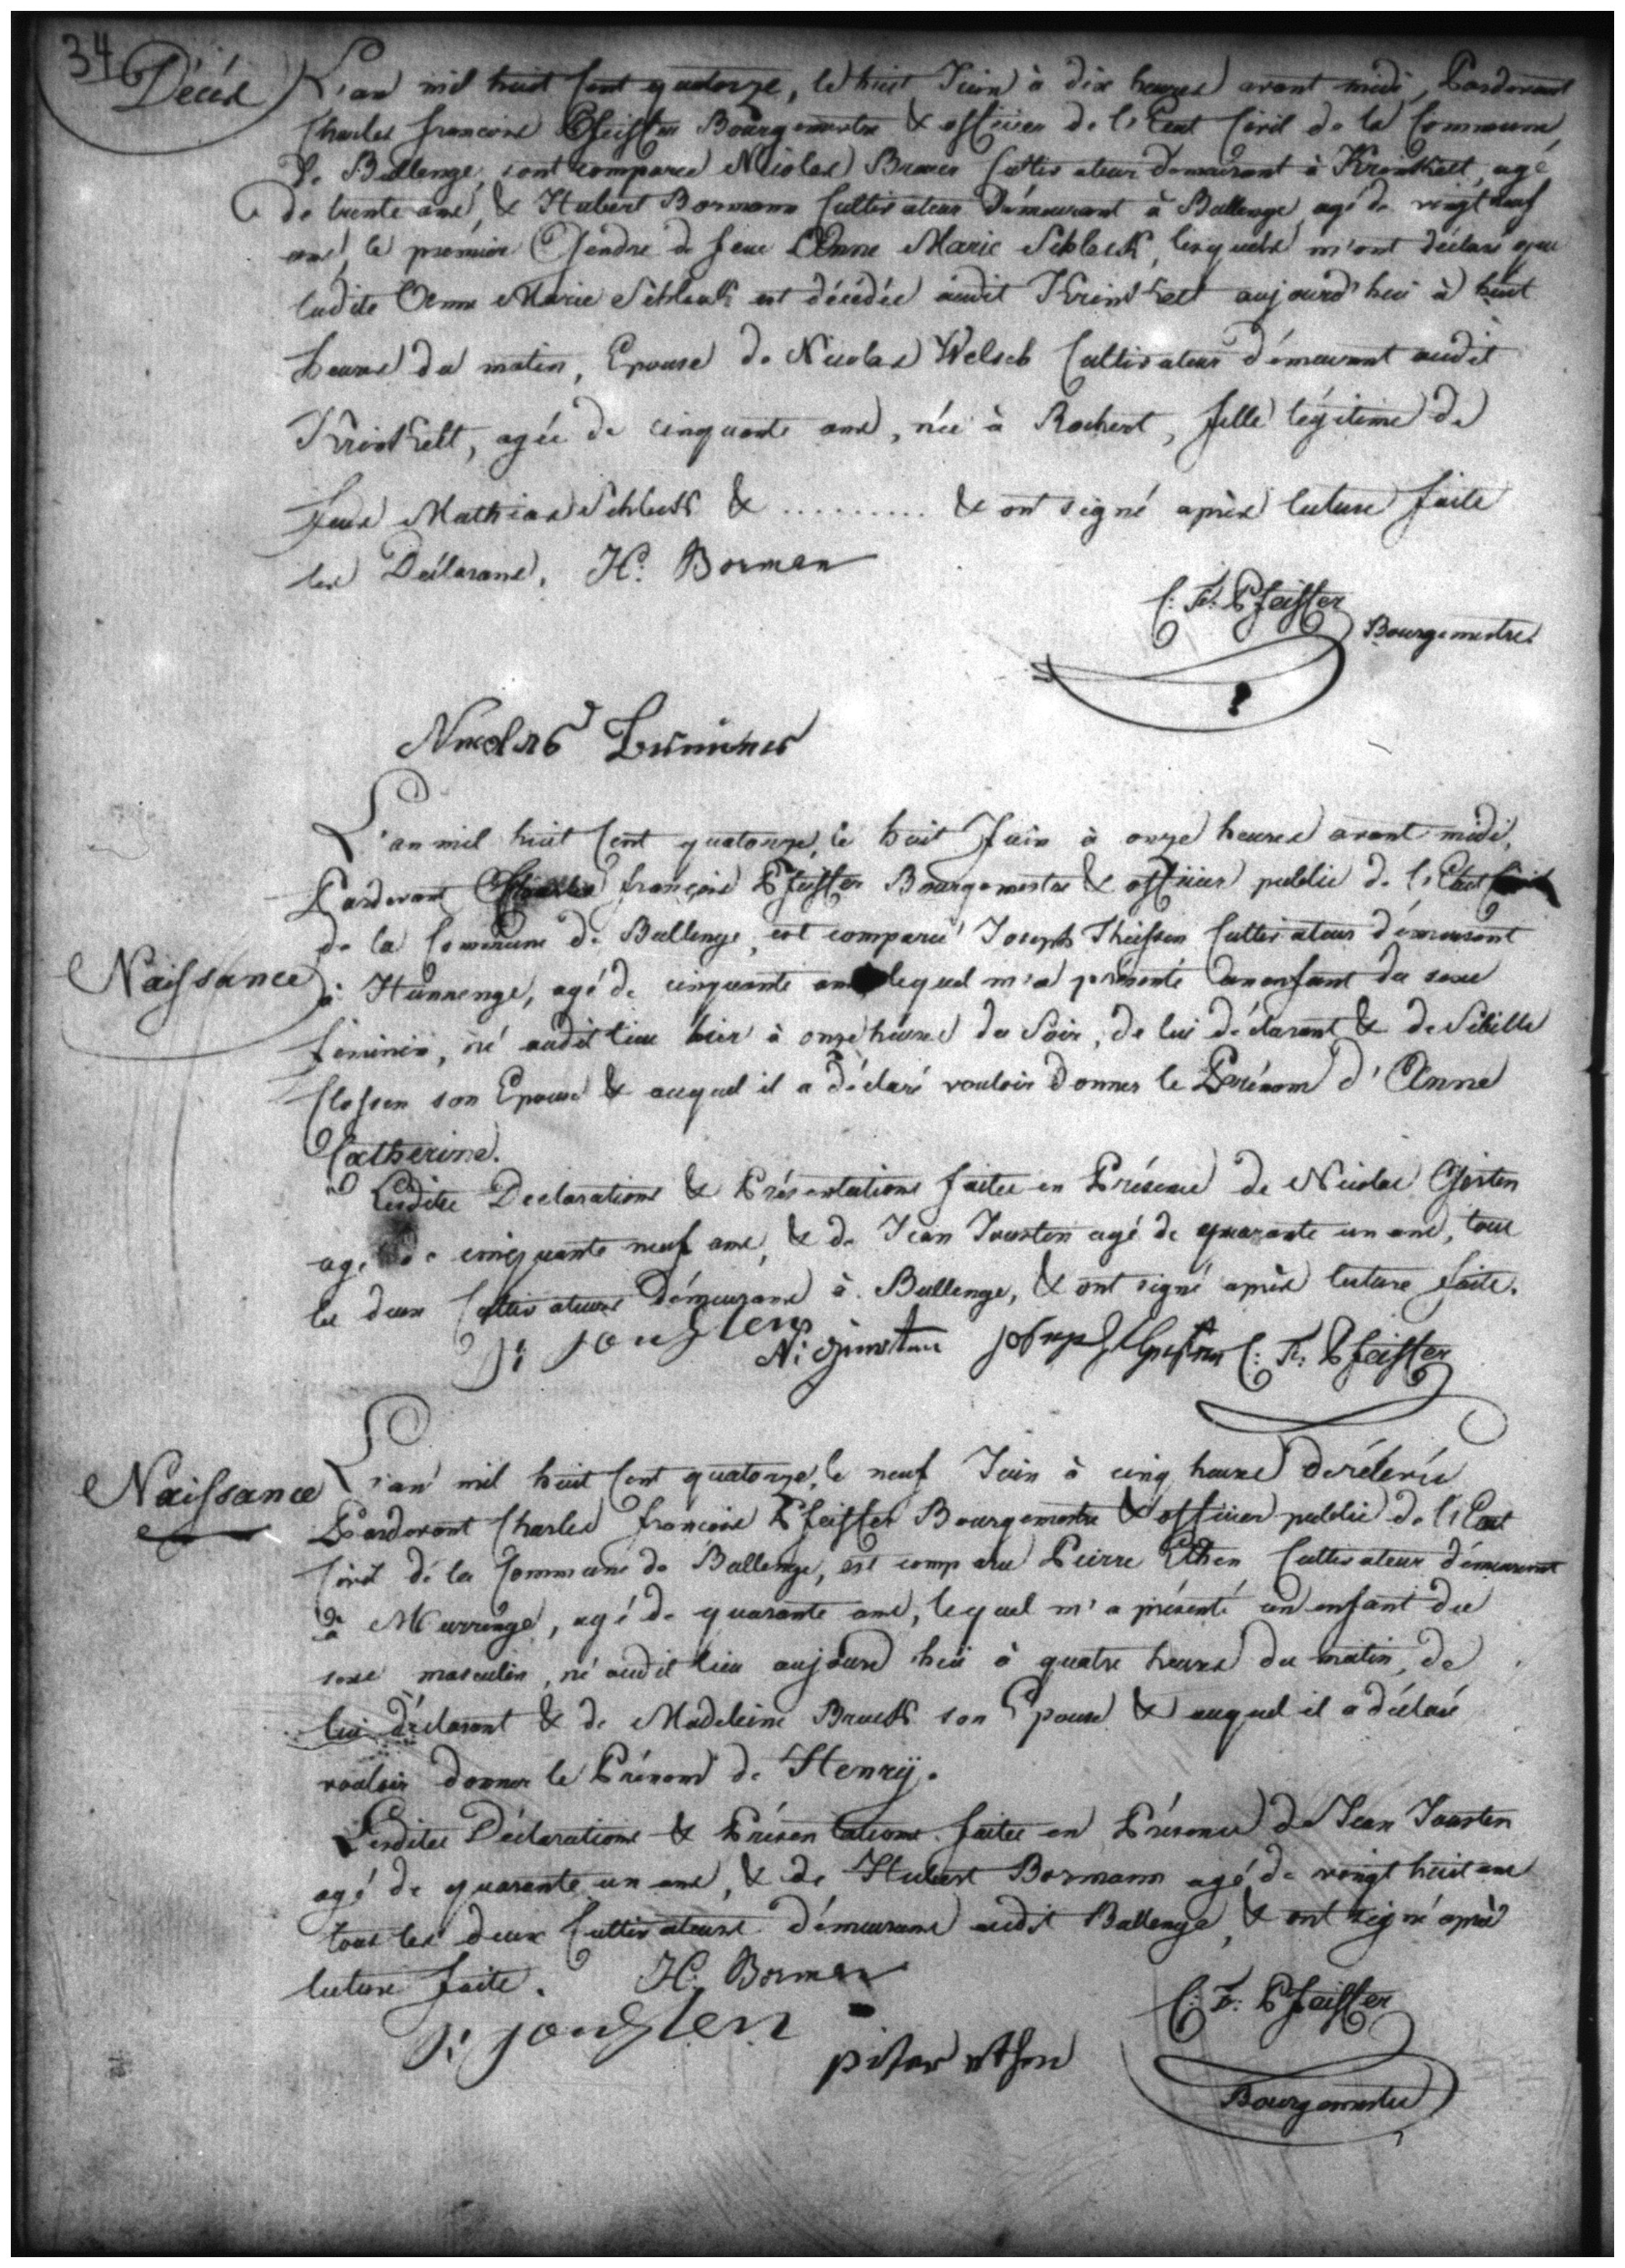 34
Décès
L'an mil huit Cent quatorze, le huit Juin à dix heures avant midi, Pardevant
Charles françois Pfeiffer Bourgemestre & officier de l'Etat Civil de la Commune
de Bullenge, sont comparus Nicolas Cultivateur demeurant à Krinkelt, agé
de trente ans, & Hubert Bormann Cultivateur démeurant à Bullenge agé de vingt neuf
ans, le prémier Gendre de feue Anne Marie Schleck, lesquels m'ont déclaré que
ladite Anne Marie Schleck est décédée audit Krinkelt aujourd'hui à huit
heures du matin, Epouse de Nicolas Welsch Cultivateur démeurant audit
Krinkelt, agée de cinquante ans, née à Rochert, fille légitime de
feus Mathias Schleck & .......... & ont signé après lecture faite
les Déclarans. H. Borman
C: F: Pfeiffer
Bourgemestre.
Nicolas
L'an mil huit Cent quatorze, le huit Juin à onze heures avant midi,
Pardevant Charles françois Pfeiffer Bourgemestre & officier public de l'Etat Civil
de la Commune de Bullenge, est comparu Joseph Theissen Cultivateur démeurant
Naissance
à Hünnenge, agé de cinquante ans lequel m'a présenté un enfant du sexe
féminin, né audit lieu hier à onze heures du Soir, de lui déclarant & de Sibille
Clossen son Epouse & auquel il a déclaré vouloir donner le Prénom d'Anne
Catherine.
Lesdites Declarations & Présentations faites en Présence de Nicolas Girten
agé de cinquante neuf ans, & de Jean Jousten agé de quarante un ans, tous
les deux Cultivateurs démeurans à Bullenge, & ont signé après lecture faite.
J: jousten
N: Joseph C: F: Pfeiffer
Naissance
L'an mil huit Cent quatorze, le neuf Juin à cinq heures de rélevée
Pardevant Charles françois Pfeiffer Bourgemestre & officier public de l'Etat
Civil de la Commune de Bullenge, est comparu Pierre Ethen Cultivateur démeurant
à Murrenge, agé de quarante ans, lequel m'a présenté un enfant du
sexe masculin, né audit lieu aujourd hui à quatre heures du matin, de
lui déclarant & de Madeleine Brück son Epouse & auquel il a déclaré
vouloir donner le Prénom de Henrÿ.
Lesdites Déclarations & Présentations faites en Présence de Jean Jousten
agé de quarante un ans, & de Hubert Bormann agé de vingt huit ans
tous les deux Cultivateurs démeurans audit Bullenge, & ont signé après
lecture faite. H. Borman
C: F: Pfeiffer
J: jousten
piter ethen
Bourgemestre